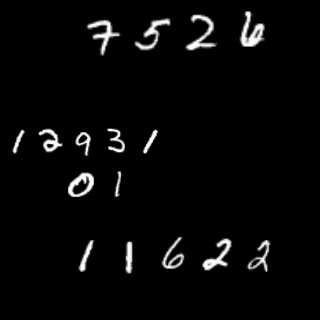 7 5 2 6
1 2 9 3 1
0 1
1 1 6 2 2